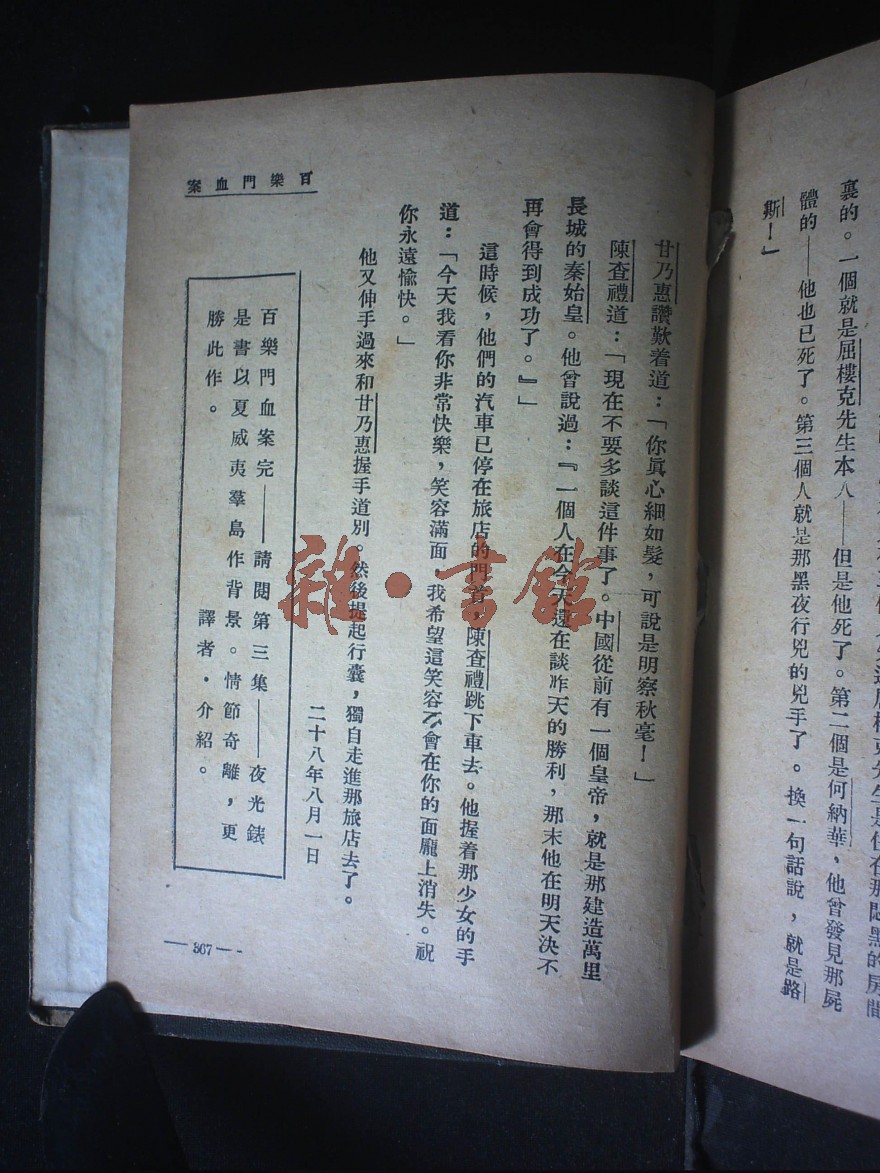 裏的。一個就是屈樓克先生本人——但是他死了。第二個是何納華，他曾發見那屍
體的——他也已死了。第三個人就是那黑夜行兇的兇手了。換一句話說，就是路
斯！」
百樂門血案
甘乃惠讚歎着道：「你眞心細如髮，可說是明察秋毫！」
陳查禮道：「現在不要多談這件事了。中國從前有一個皇帝，就是那建造萬里
長城的秦始皇。他曾說過：『一個人在今天還在談昨天的勝利，那末他在明天決不
再會得到成功了。』」
這時候，他們的汽車已停在旅店的門首，陳查禮跳下車去。他握着那少女的手
道：「今天我看你非常快樂，笑容滿面，我希望這笑容不會在你的面龐上消失。祝
你永遠愉快。」
他又伸手過來和甘乃惠握手道別。然後提起行囊，獨自走進那旅店去了。
二十八年八月一日
百樂門血案完——請閱第三集——夜光錶
是書以夏威夷羣島作背景。情節奇離，更
勝此作。　譯者・介紹。
—367—
雜・書館